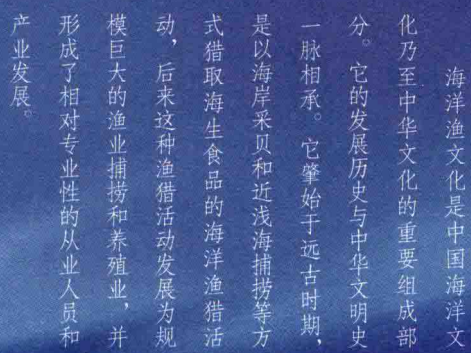 海洋渔文化是中国海洋文
化乃至中华文化的重要组成部
分。它的发展历史与中华文明史
一脉相承。它肇始于远古时期，
是以海岸采贝和近浅海捕捞等方
式猎取海生食品的海洋渔猎活
动，后来这种渔猎活动发展为规
模巨大的渔业捕捞和养殖业，并
形成了相对专业性的从业人员和
产业发展。